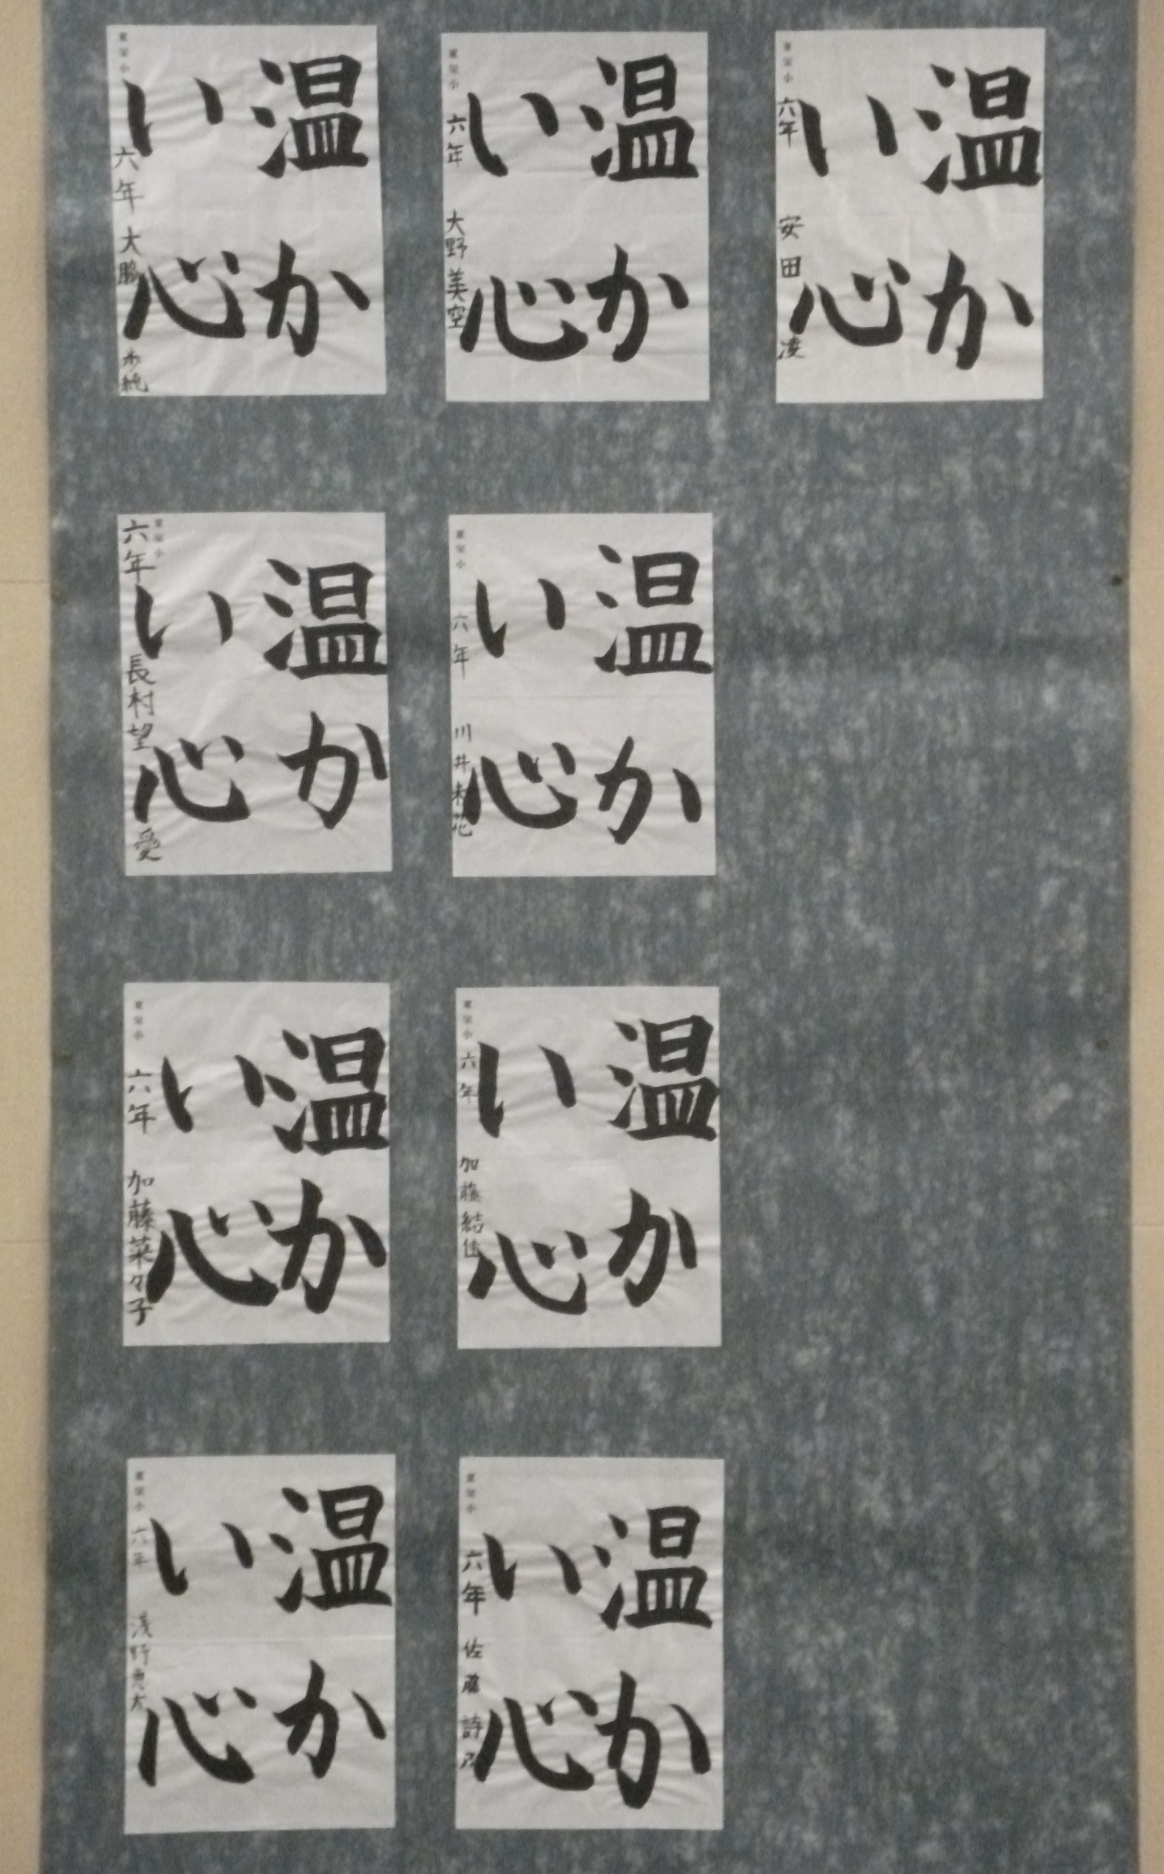 温か
い心
東栄小
六年 安田 凌
温か
い心
東栄小
六年 大野美空
温か
い心
東栄小
六年 大脇
温か
い心
東栄小
六年 川井
温か
い心
東栄小
六年 長村望愛
温か
い心
東栄小
六年 加藤結佳
温か
い心
東栄小
六年 加藤菜々子
温か
い心
東栄小
六年 佐藤 詩乃
温か
い心
東栄小
六年 浅野